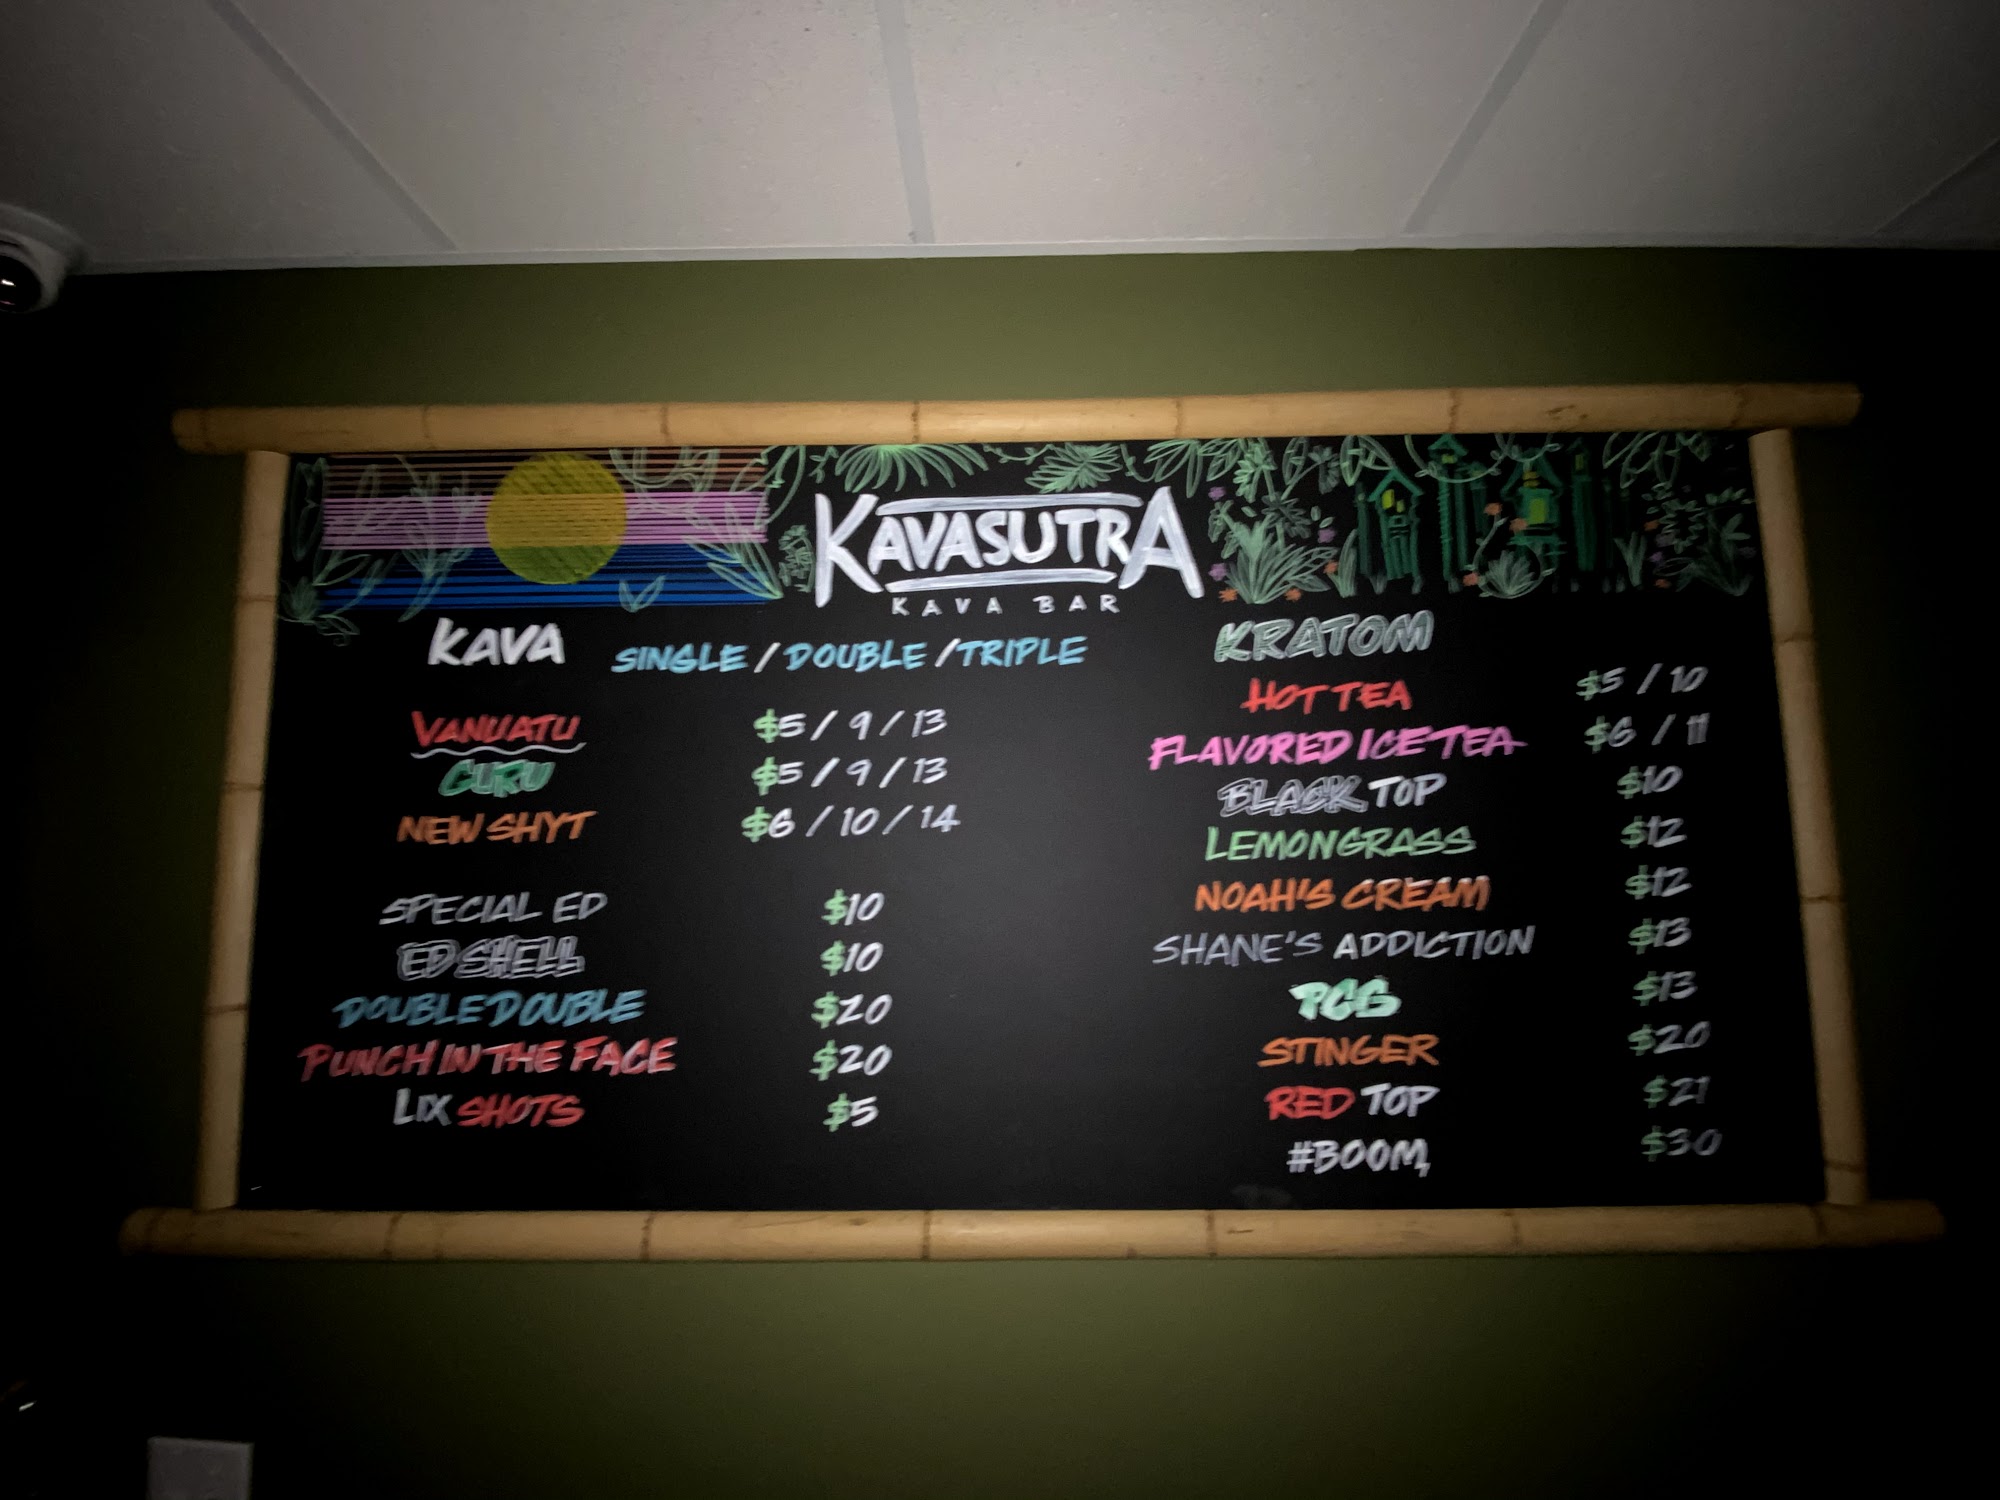 KAVASUTRA
KAVA BAR
KAVA SINGLE / DOUBLE / TRIPLE
VANUATU $5 / 9 / 13
GURU $5 / 9 / 13
NEW SHYT $6 / 10 / 14
SPECIAL ED $10
ED SHELL $10
DOUBLE DOUBLE $20
PUNCH IN THE FACE $20
LIX SHOTS $5
KRATOM
HOT TEA $5 / 10
FLAVORED ICE TEA $6 / 11
BLACK TOP $10
LEMONGRASS $12
NOAH'S CREAM $12
SHANE'S ADDICTION $13
PCG $13
STINGER $20
RED TOP $21
#BOOM $30